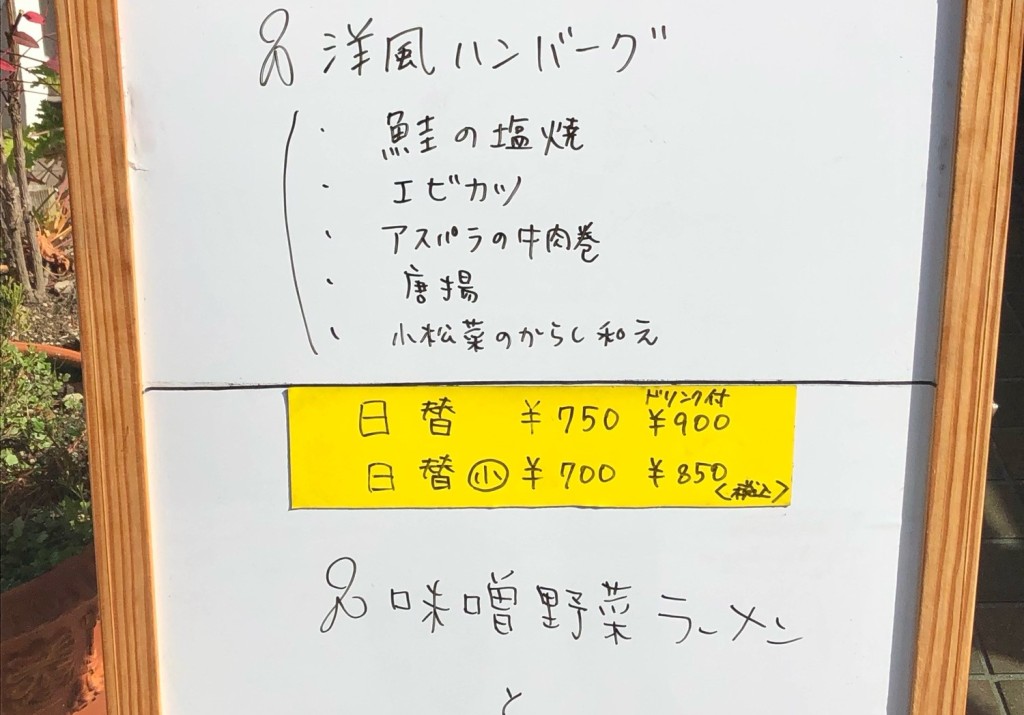 洋風ハンバーグ
・ 鮭の塩焼
・ エビカツ
・ アスパラの牛肉巻
・ 唐揚
・ 小松菜のからし和え
ドリンク付
日替 ¥750 ¥900
日替㊙小 ¥700 ¥850
<税込>
味噌野菜ラーメン
と